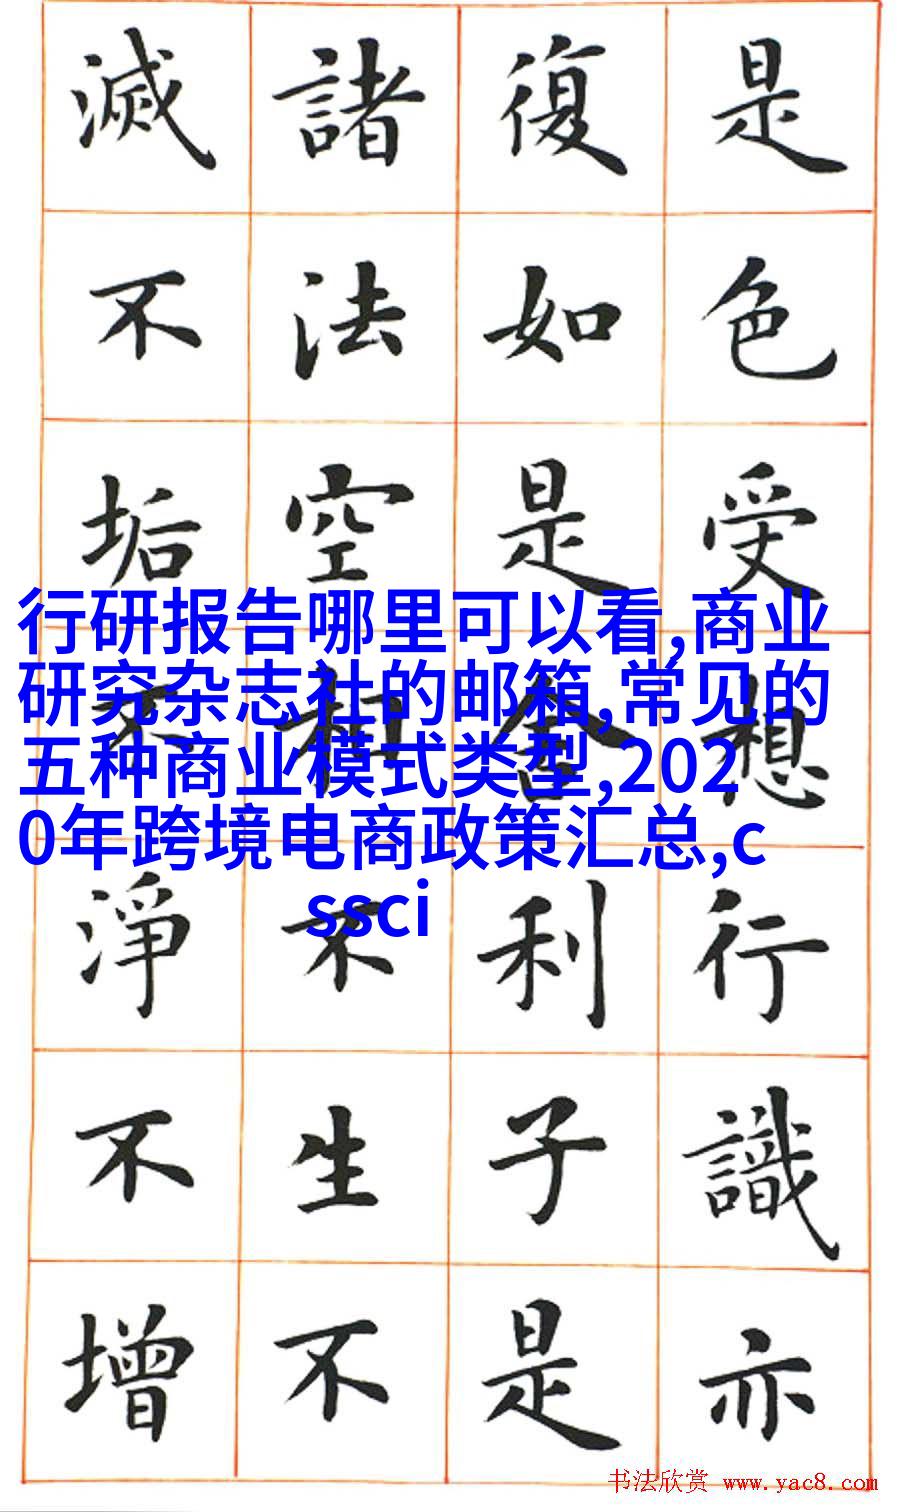 是色受想行識亦
復如是舍利子是
諸法空相不生不
滅不垢不淨不增
行研报告哪里可以看,商业
研究杂志社的邮箱,常见的
五种商业模式类型,202
0年跨境电商政策汇总,c
ssci
书法欣赏 www.yac8.com